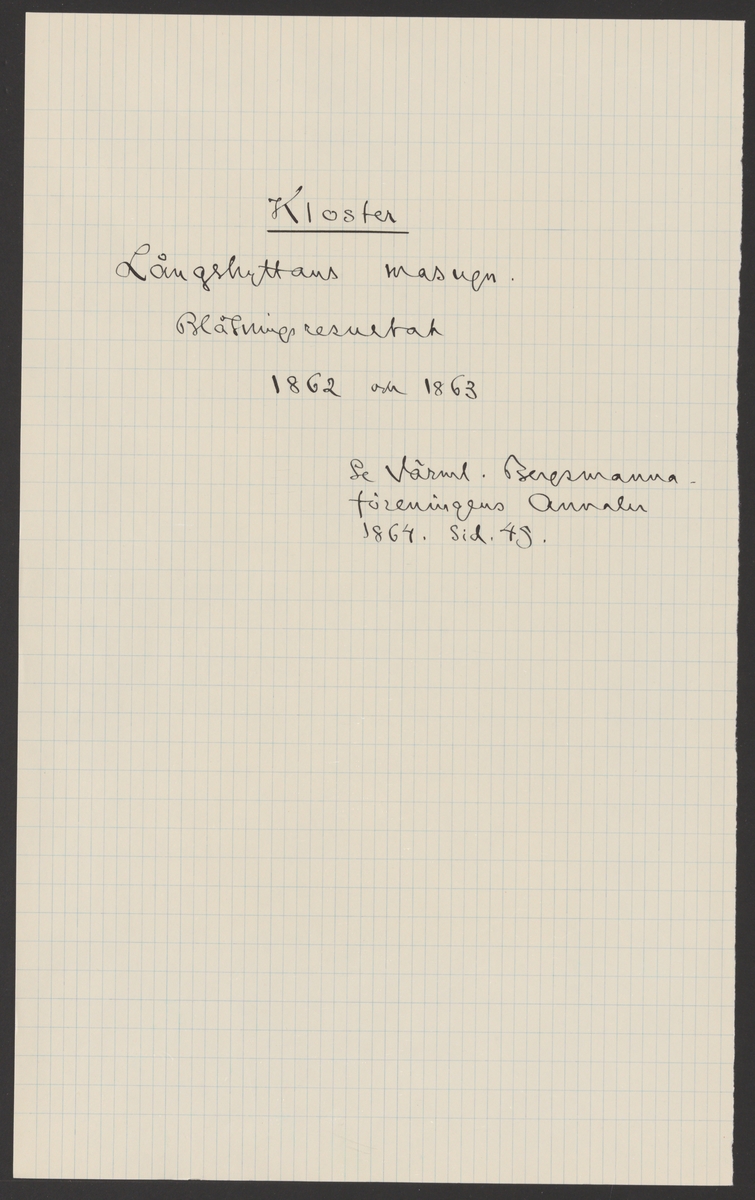 Kloster
Långshyttans masugn.
Blåsningsresultat
1862 och 1863
Se Värml. Bergsmanna-
föreningens Annaler
1864. Sid. 45.